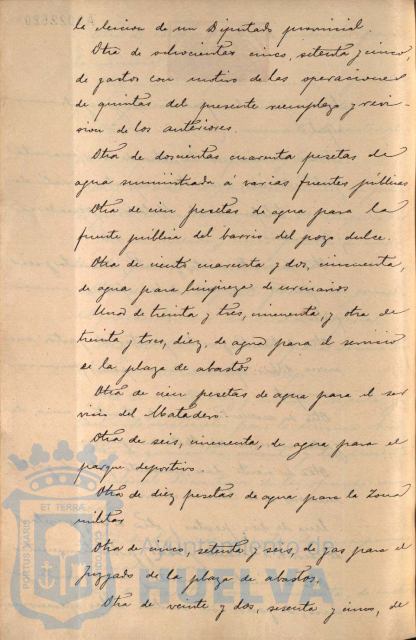 la eleccion de un Diputado provincial.
Otra de ochocientas cinco, setenta y cinco,
de gastos con motivo de las operaciones
de quintas del presente reemplazo y revi-
sion de los anteriores.
Otra de doscientas cuarenta pesetas de
agua suministrada á varias fuentes públicas
Otra de cien pesetas de agua para la
fuente pública del barrio del pozo dulce.
Otra de ciento cuarenta y dos, cincuenta,
de agua para limpieza de urinarios
Una de treinta y tres, cincuenta, y otra de
treinta y tres, diez, de agua para el servicio
de la plaza de abastos
Otra de cien pesetas de agua para el ser
vicio del Matadero.
Otra de seis, cincuenta, de agua para el
parque deportivo.
Otra de diez pesetas de agua para la Zona
militar
Otra de cinco, setenta y seis, de gas para el
Juzgado de la plaza de abastos.
Otra de veinte y dos, sesenta y cinco, de
PORTUS MARIS
ET TERRAE
Ayuntamiento de
HUELVA